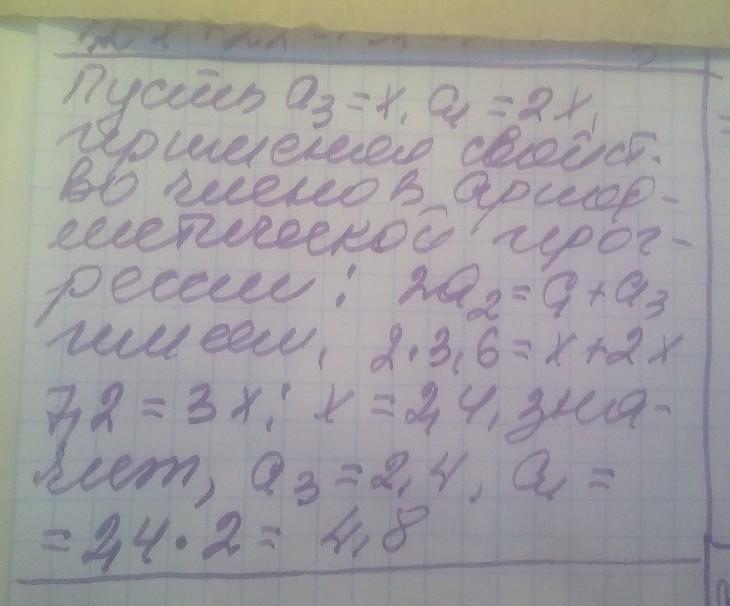 Пусть a₃ = x, a₁ = 2x,
применяя свойст-
во членов ариф-
метической прог-
рессии: 2a₂ = a₁ + a₃
имеем, 2·3,6 = x + 2x
7,2 = 3x; x = 2,4, зна-
чит, a₃ = 2,4, a₁ =
= 2,4 · 2 = 4,8